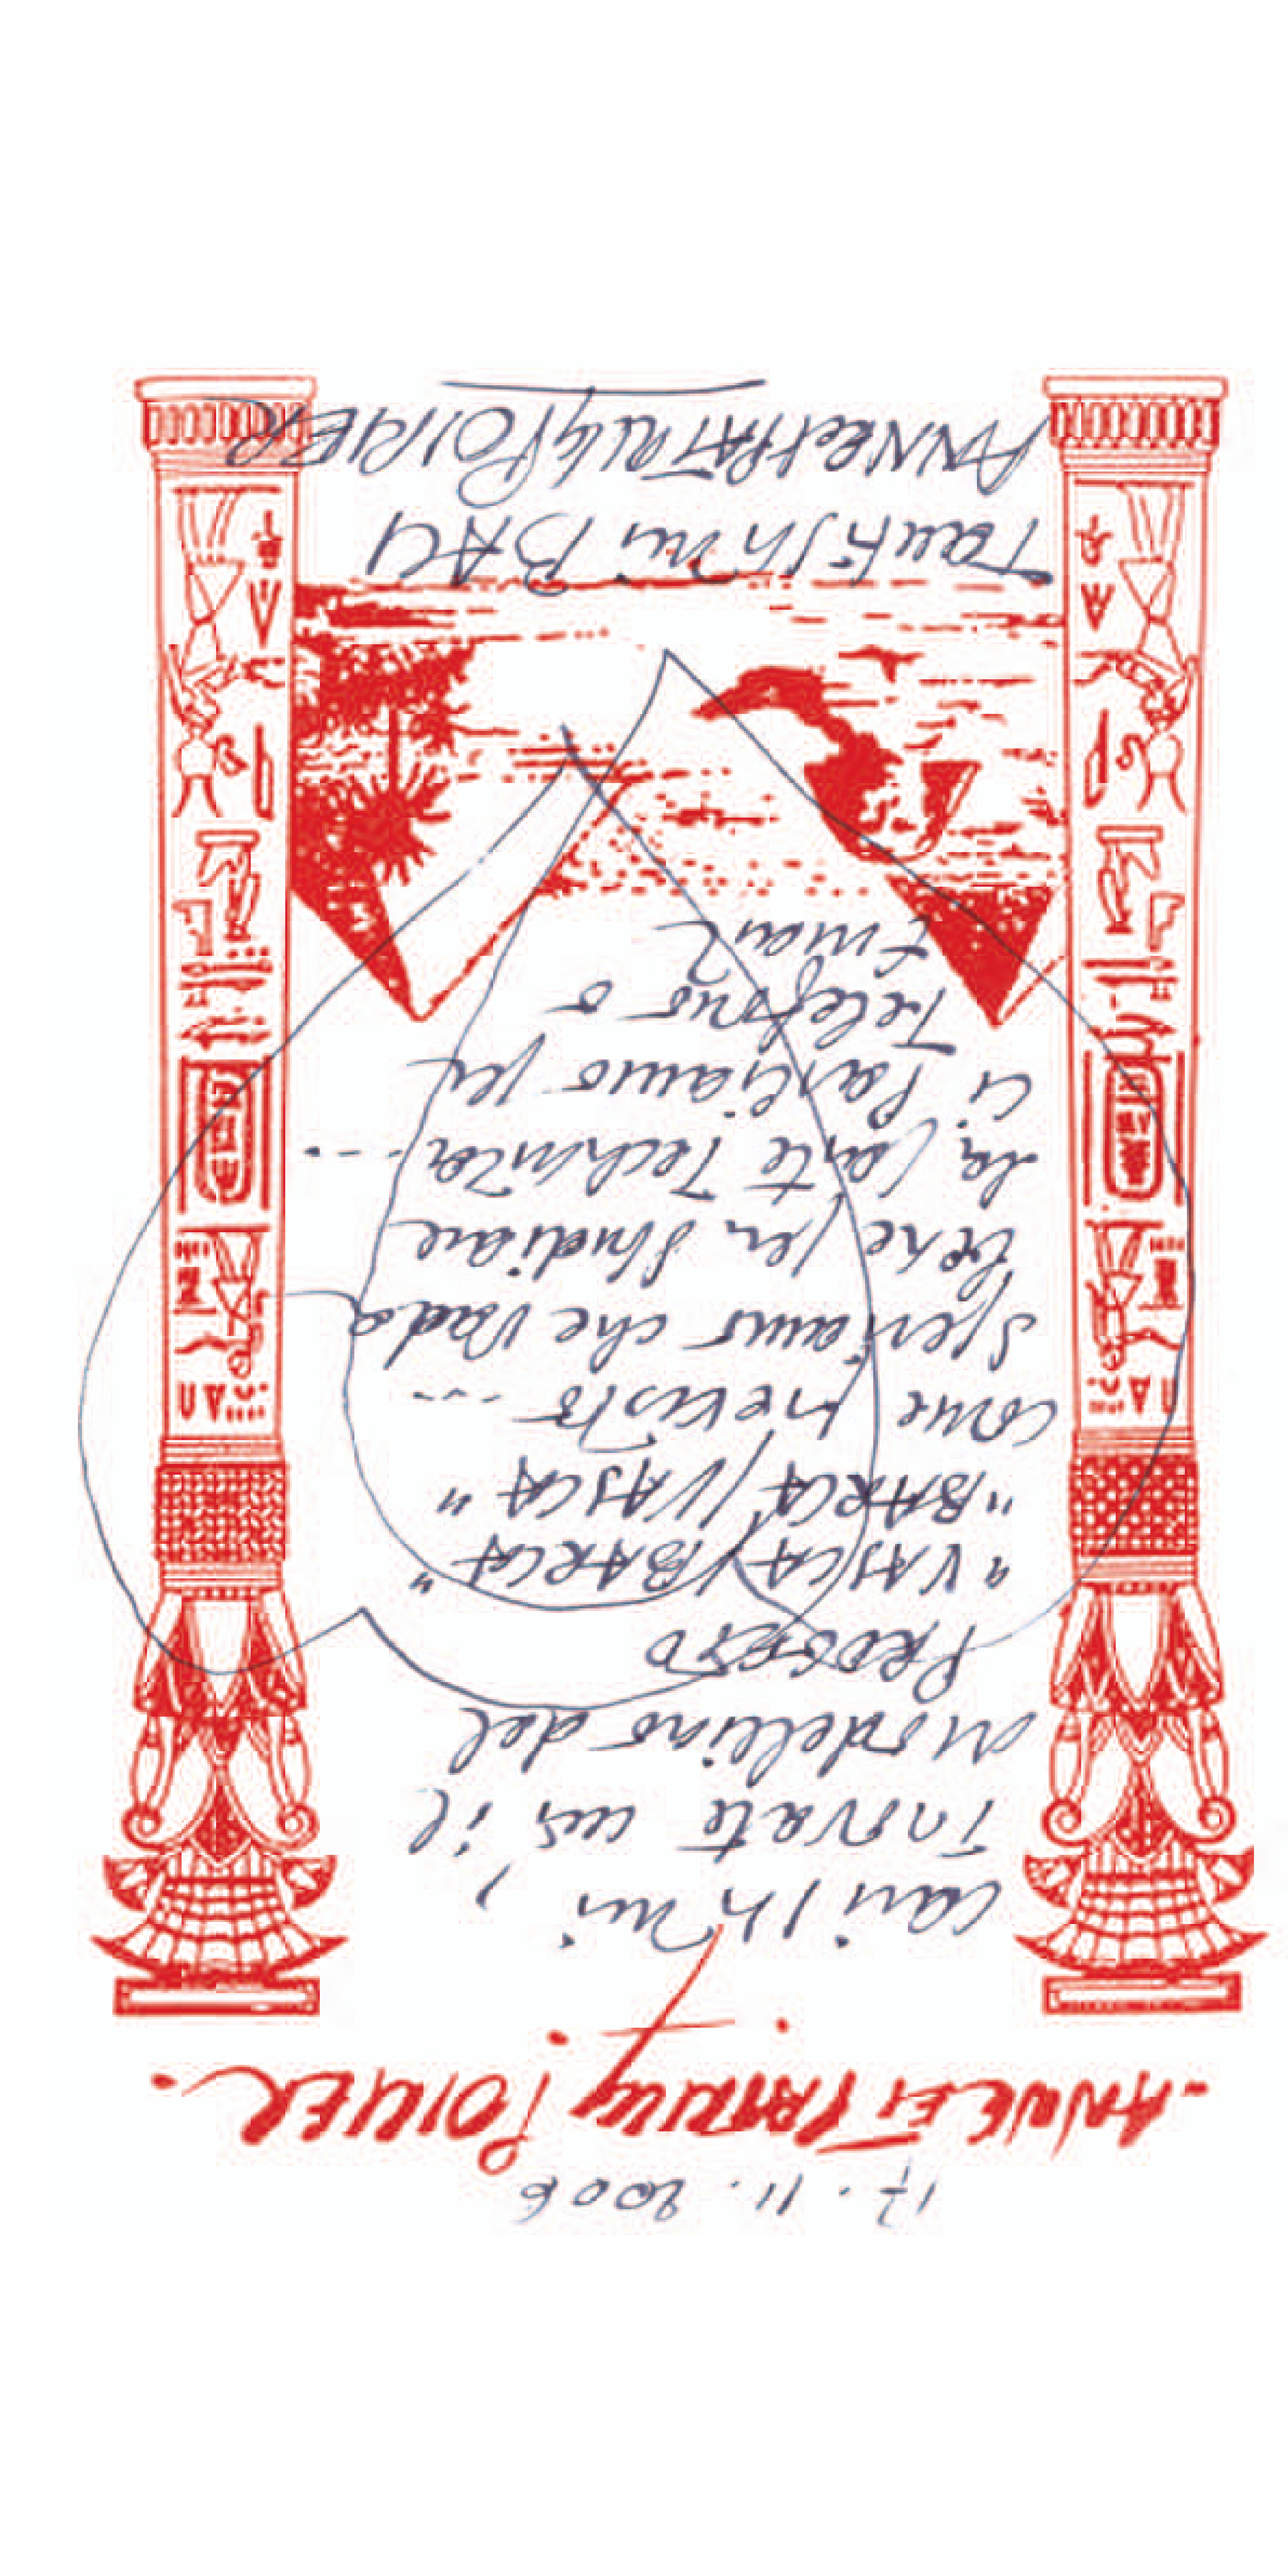 17.11.2006
-ANNE ET PATRICK POIRIER.-
Carissimi,
Trovate il
Modellino del
PROGETTO
"VASCA/BARCA"
"BARCA/VASCA"
come previsto ...
Speriamo che vada
bene per studiare
la parte Technica ....
ci parliamo per
Telefono o
Email
Tantissimi BACI
ANNE et PATRICK POIRIER